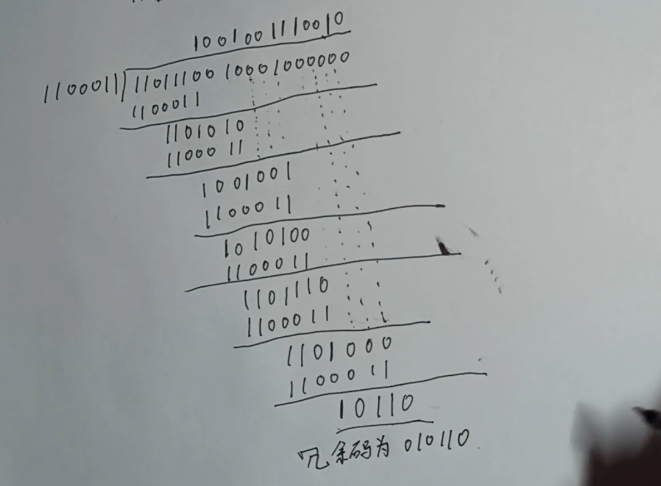 1001001110010
1100011 1101110010001000000
1100011
1101010
1100011
1001001
1100011
1010100
1100011
1101110
1100011
1101000
1100011
10110
冗余码为 010110